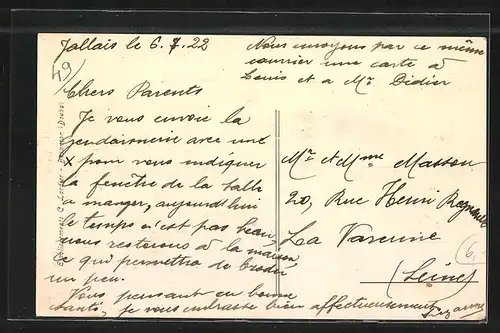 Jallais le 6. 7. 22
Nous envoyons par ce même
courrier une carte à
Louis et a Mr Didier
49
Chers Parents
Je vous envoie la
gendarmerie avec une
X pour vous indiquer
la fenêtre de la salle
a manger, aujourd'hui
le temps n'est pas beau,
nous resterons à la maison,
ce qui permettra de broder
un peu.
Vous pensant en bonne
santé, je vous embrasse bien affectueusement
Suzanne
Mr et Mme Masson
20, Rue Henri Regnault
La Varenne
(Seine)
6.